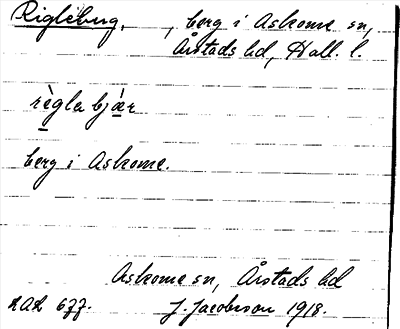 Rigleberg, , berg i Askome sn,
Årstads hd, Hall. l.
règla bjǽr
berg i Askome.
Askome sn, Årstads hd
J. Jacobsson 1918.